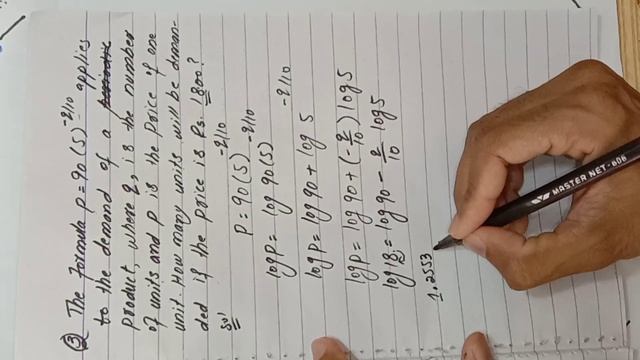 ③ The formula p = 90 (5)^-q/10 applies
to the demand of a
product, where q, is the number
of units and p is the price of one
unit. How many units will be deman-
ded if the price is Rs. 18.00?
Sol
p = 90 (5)^-q/10
log p = log 90 (5)^-q/10
log p = log 90 + log 5^-q/10
log p = log 90 + (-q/10) log 5
log 18 = log 90 - q/10 log 5
1.2553
MASTER NET-606